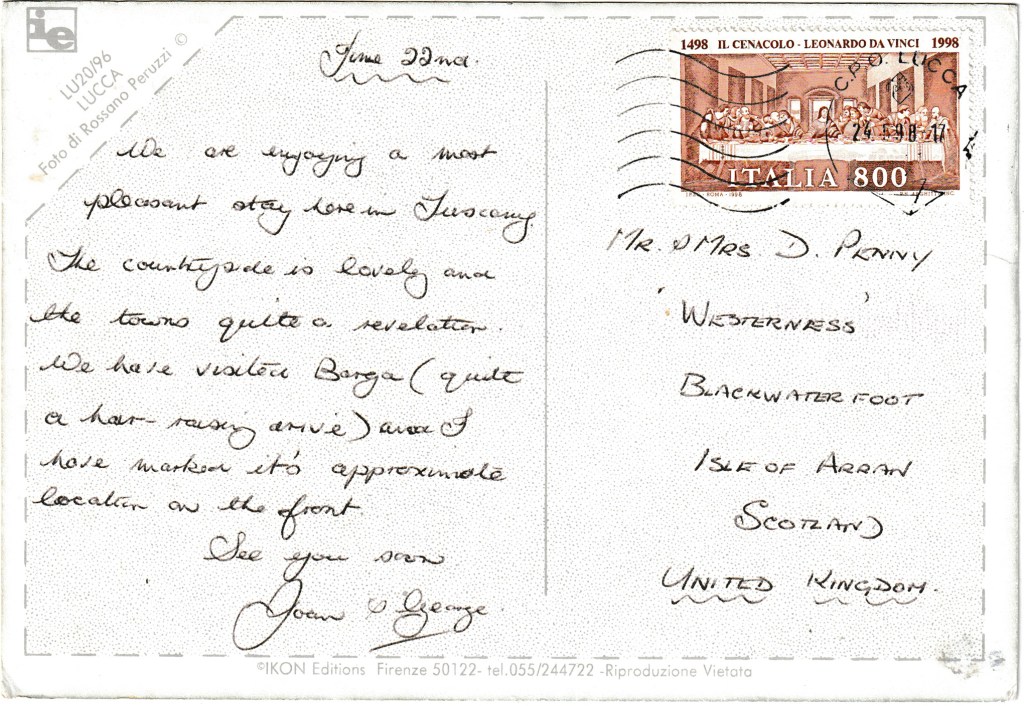 ie
LU20/96
LUCCA
Foto di Rossano Peruzzi ©
June 22nd.
We are enjoying a most
pleasant stay here in Tuscany.
The countryside is lovely and
the towns quite a revelation.
We have visited Barga (quite
a hair-raising drive) and I
have marked it's approximate
location on the front
See you soon
Joan & George.
1498 IL CENACOLO - LEONARDO DA VINCI 1998
ITALIA 800
C.P.O. LUCCA
MR. & MRS. D. PENNY
'WESTERNESS'
BLACKWATERFOOT
ISLE OF ARRAN
SCOTLAND
UNITED KINGDOM.
©IKON Editions Firenze 50122- tel.055/244722 -Riproduzione Vietata